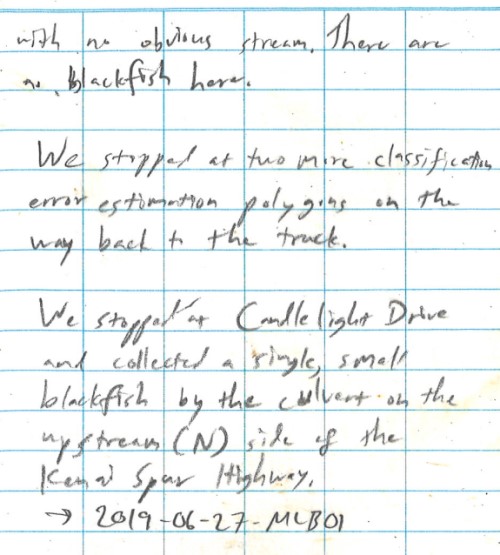 with no obvious stream. There are
no blackfish here.
We stopped at two more classification
error estimation polygons on the
way back to the truck.
We stopped at Candlelight Drive
and collected a single, small
blackfish by the culvert on the
upstream (N) side of the
Kenai Spur Highway.
→ 2019-06-27-MLB01